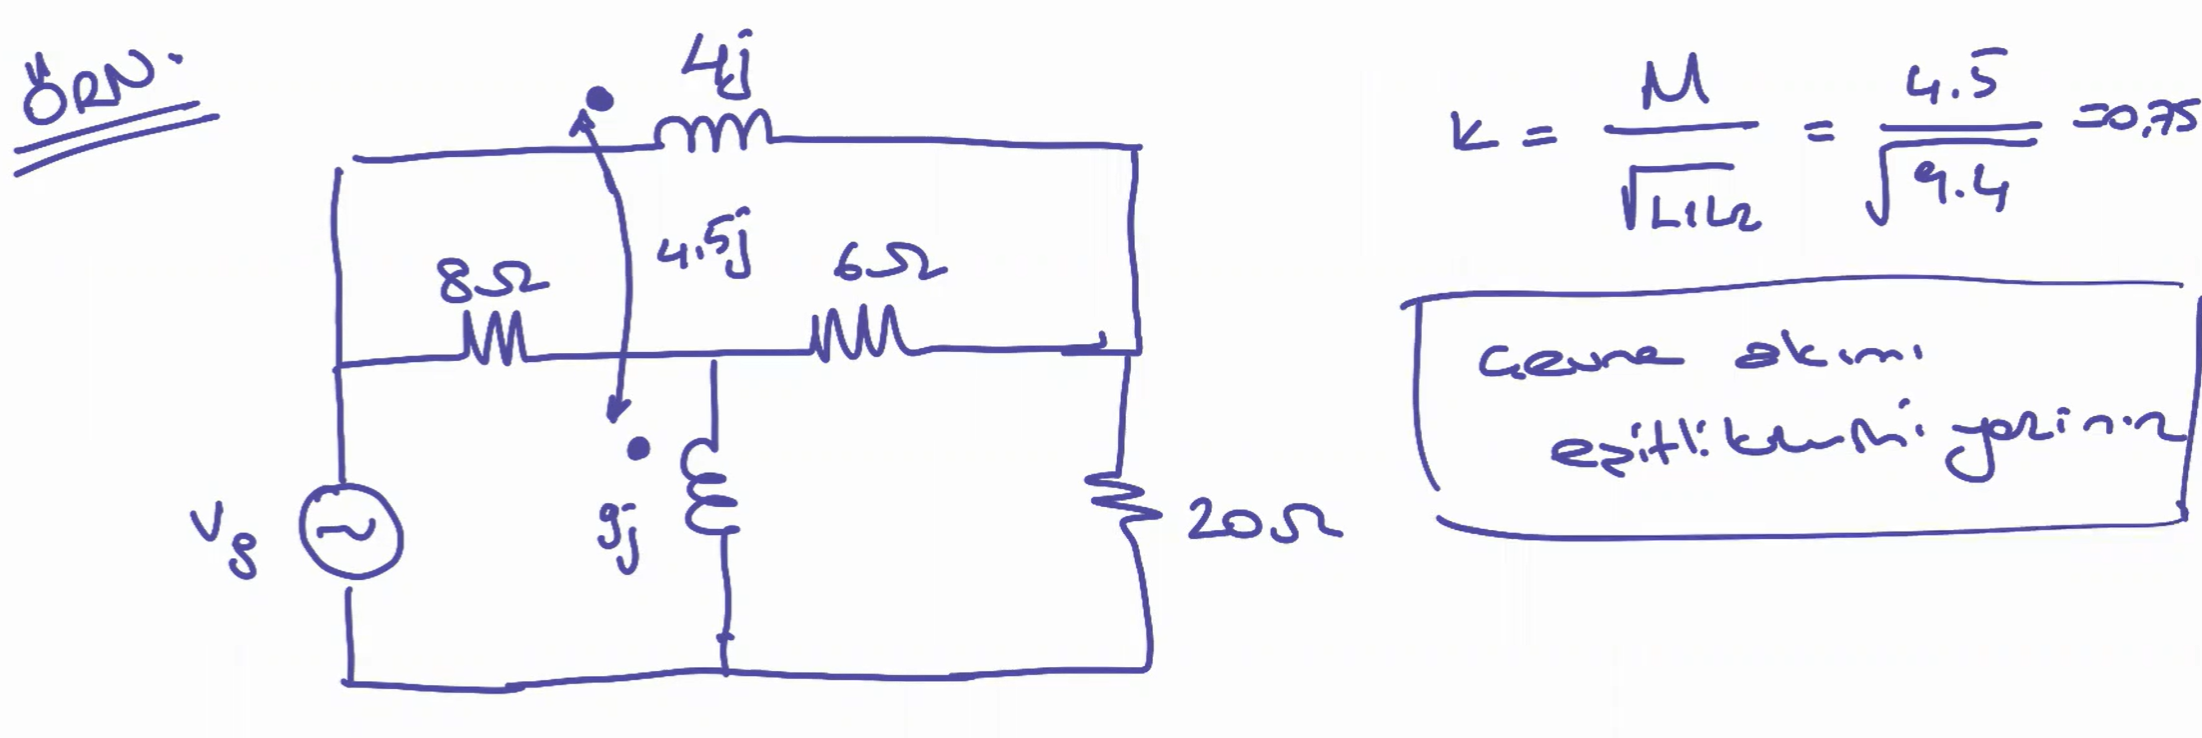 ÖRN.
4j
4.5j
8Ω
6Ω
Vg
9j
20Ω
k = M / √L1L2 = 4.5 / √9.4 = 0,75
Çevre akımı
eşitliklerini yazınız